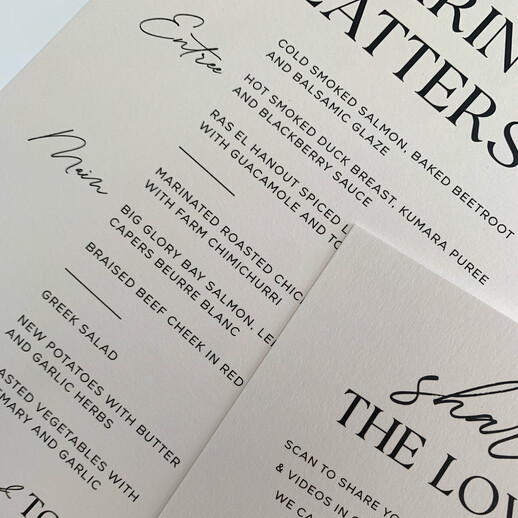 LATTERS
Entree
COLD SMOKED SALMON, BAKED BEETROOT
AND BALSAMIC GLAZE
HOT SMOKED DUCK BREAST, KUMARA PUREE
AND BLACKBERRY SAUCE
RAS EL HANOUT SPICED
WITH GUACAMOLE AND
Main
MARINATED ROASTED
WITH FARM CHIMICHURRI
BIG GLORY BAY SALMON,
CAPERS BEURRE BLANC
BRAISED BEEF CHEEK IN RED
GREEK SALAD
NEW POTATOES WITH BUTTER
AND GARLIC HERBS
VEGETABLES WITH
AND GARLIC
&
THE
SCAN TO SHARE
& VIDEOS IN
WE